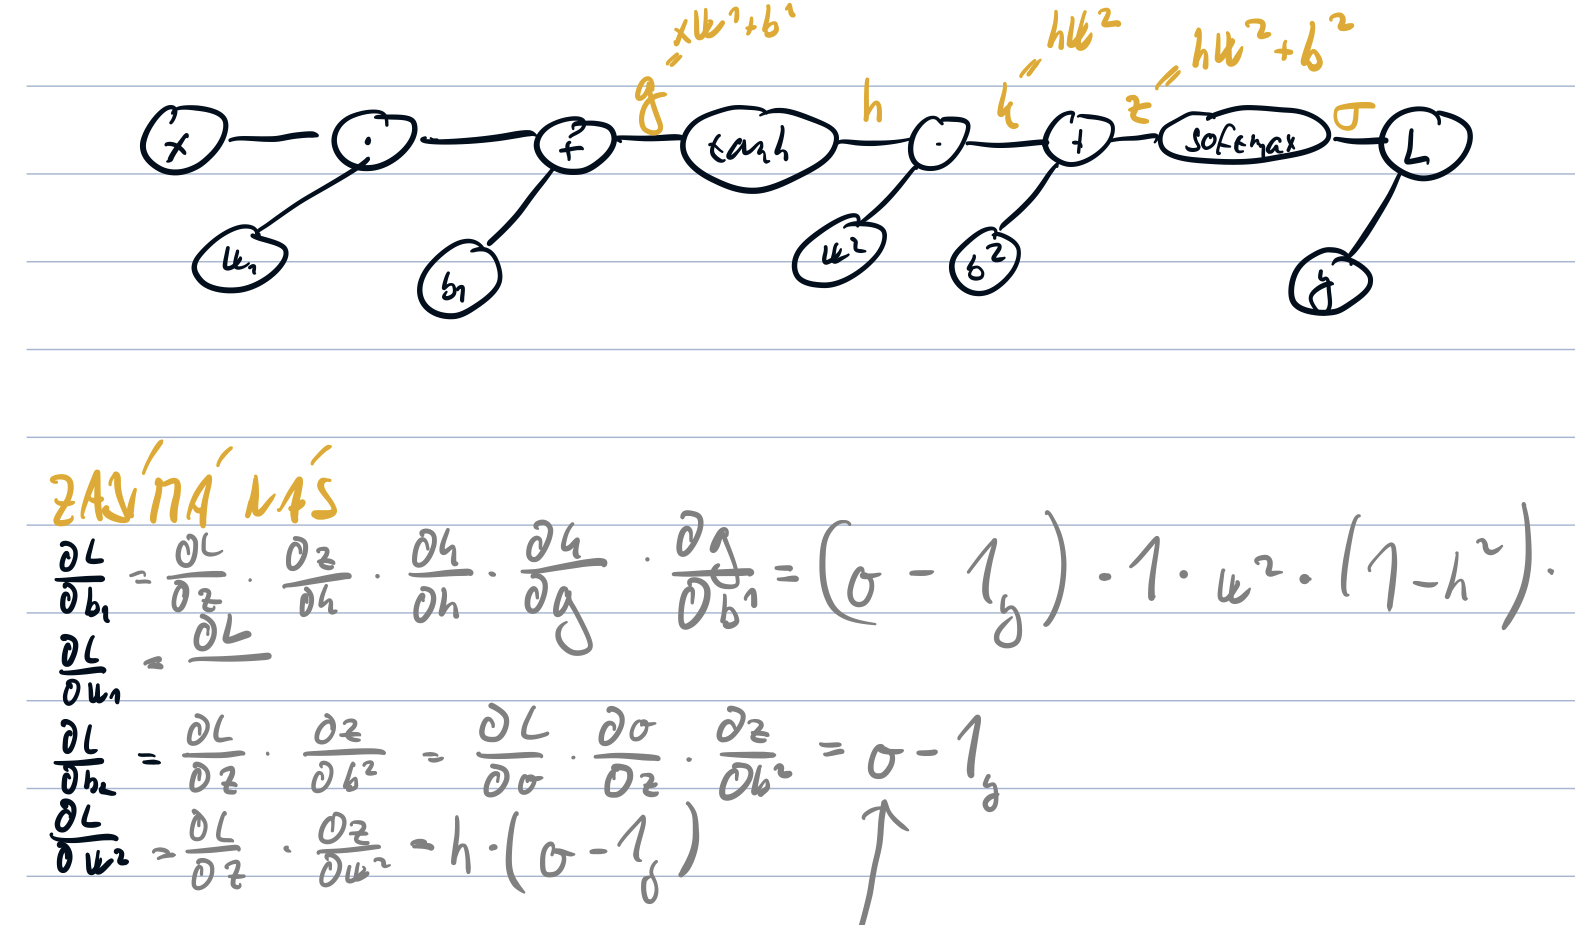 xW¹+b¹ hW² hW²+b²
g h k z σ
x · + tanh · + softmax L
W₁ b₁ W² b² y
ZAJÍMÁ NÁS
∂L/∂b₁ = ∂L/∂z · ∂z/∂k · ∂k/∂h · ∂h/∂g · ∂g/∂b¹ = (σ - 1_y) · 1 · W² · (1-h²) ·
∂L/∂W₁ = ∂L
∂L/∂b₂ = ∂L/∂z · ∂z/∂b² = ∂L/∂σ · ∂σ/∂z · ∂z/∂b² = σ - 1_y
∂L/∂W² = ∂L/∂z · ∂z/∂W² = h · (σ - 1_y)